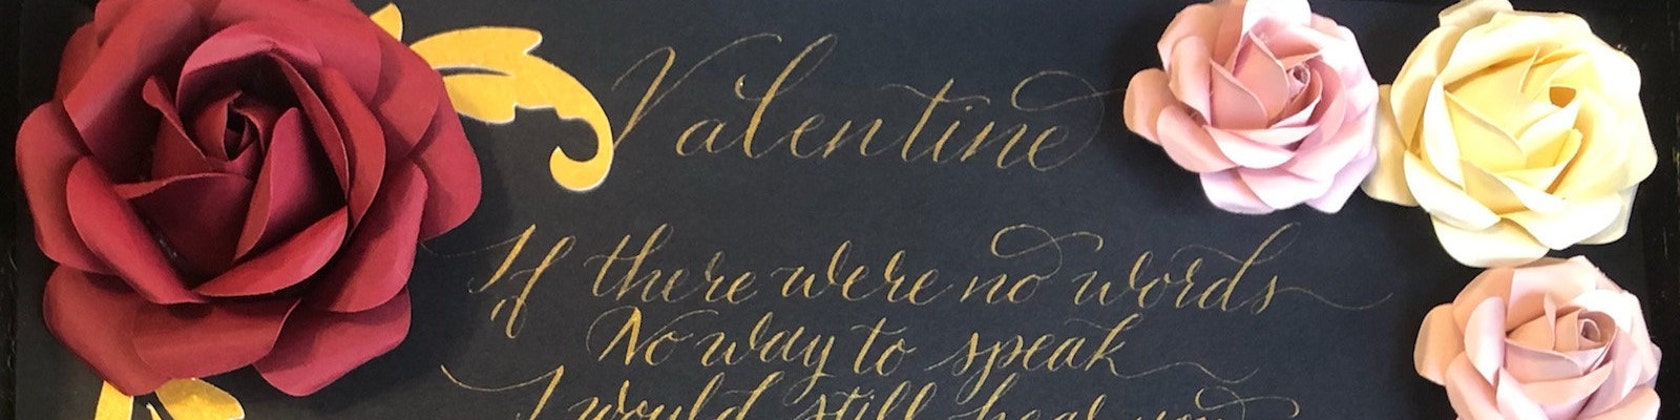 Valentine
If there were no words
No way to speak
I would still hear you